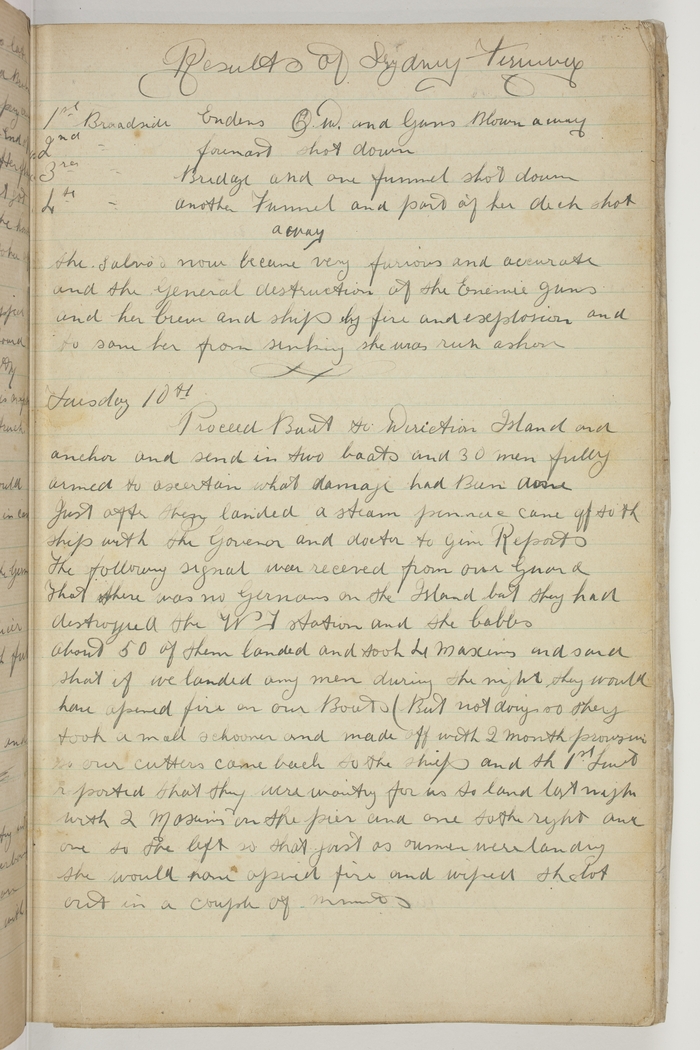 Results of Sydney Firing
1st Broadside Endens and Guns Blown away
2nd " formast shot down
3rd " Bridge and one funnel shot down
4th " another Funnel and part of her deck shot
away
the Salvos now became very furious and accurate
and the general destruction of the Enemie guns
and her Crew and ship by fire and explosion and
to save her from sinking she was run ashore
Tuesday 10th
Proceed Bact to Direction Island and
anchor and send in two boats and 30 men fully
armed to ascertan what damage had Been done
Just after they landed a steam pinnace came off to th
ship with the Govenor and doctor to give Reports
The following signal was receved from our Guard
That there was no Germans on the Island but they had
destroyed the W T station and the cables
about 50 of them landed and took 4 Maxims and said
that if we landed any men during the night they would
have opened fire on our Boats (But not doing so they
took a small schooner and made off with 2 month provision
as our cutters came back to the ship and th 1st Lieut
reported that they were waiting for us to land last night
with 2 Maxims on the pier and one to the right and
one to the left so that just as our men were landing
she would have opened fire and wiped the lot
out in a couple of minutes